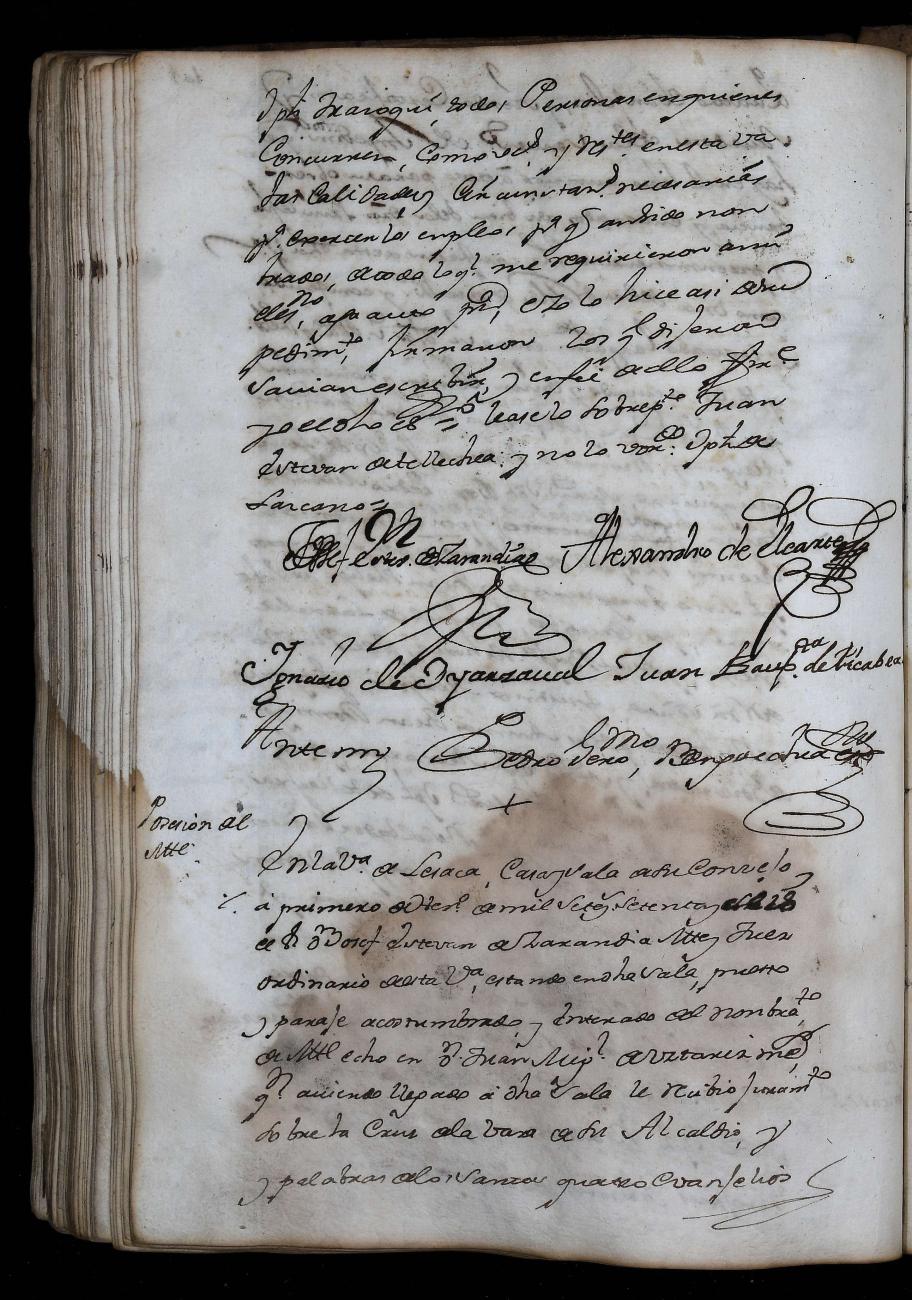 Jph. Iraioqui, todos Personas en quienes
Concurren, Como vez.s y Res.tes en esta va
las Calidades y Circunstan.s necesarias
p.a exercer los empleos p.a q.e an sido nom
brados, de todo lo q.e me requirieron a mi
el es.no, aga auto y Yo lo hice asi de su
pedim.to, firmaron los q.e dijeron
savian escribir, y en fee de ello firme
yo el dho es.no = Testdo sobrep.to Juan
Estevan de Tellechea: y no lo Jph. de
Larcano =
Josef Estev. de Zarandia Alexandro de Elearte
Ignacio de Oyarzaval Juan Baup.ta de Picabea
Ante my Pedro Gero.mo Bengoechea es.no
Posesion del
Alcte.
En la V.a de Lesaca, Casa y sala de su Concejo
a primero de En.o de mil Setz.s Setenta y
el S.r D.n Josef Estevan de Zarandia Alcte y Juez
ordinario de esta V.a, estando en dha sala, puesto
y paraje acostumbrado y enterado del nombra.to
de Alcte echo en D.n Juan Mig.l de Vztariz
q.n aviendo llegado a dha sala le recibio juram.to
sobre la Cruz de la vara de su Alcaldio, y
y palabras de los santos quatro Evanjelios